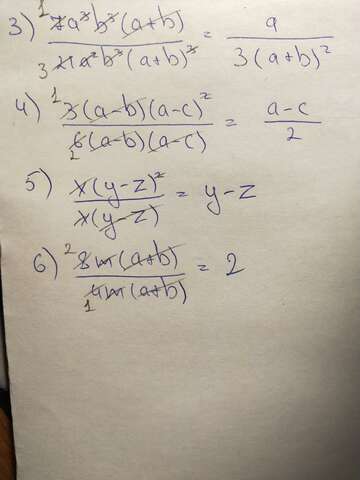 3) 7a³b³(a+b) / 21a²b³(a+b)³ = a / 3(a+b)²
4) 3(a-b)(a-c)² / 6(a-b)(a-c) = a-c / 2
5) x(y-z)² / x(y-z) = y-z
6) 8m(a+b) / 4m(a+b) = 2